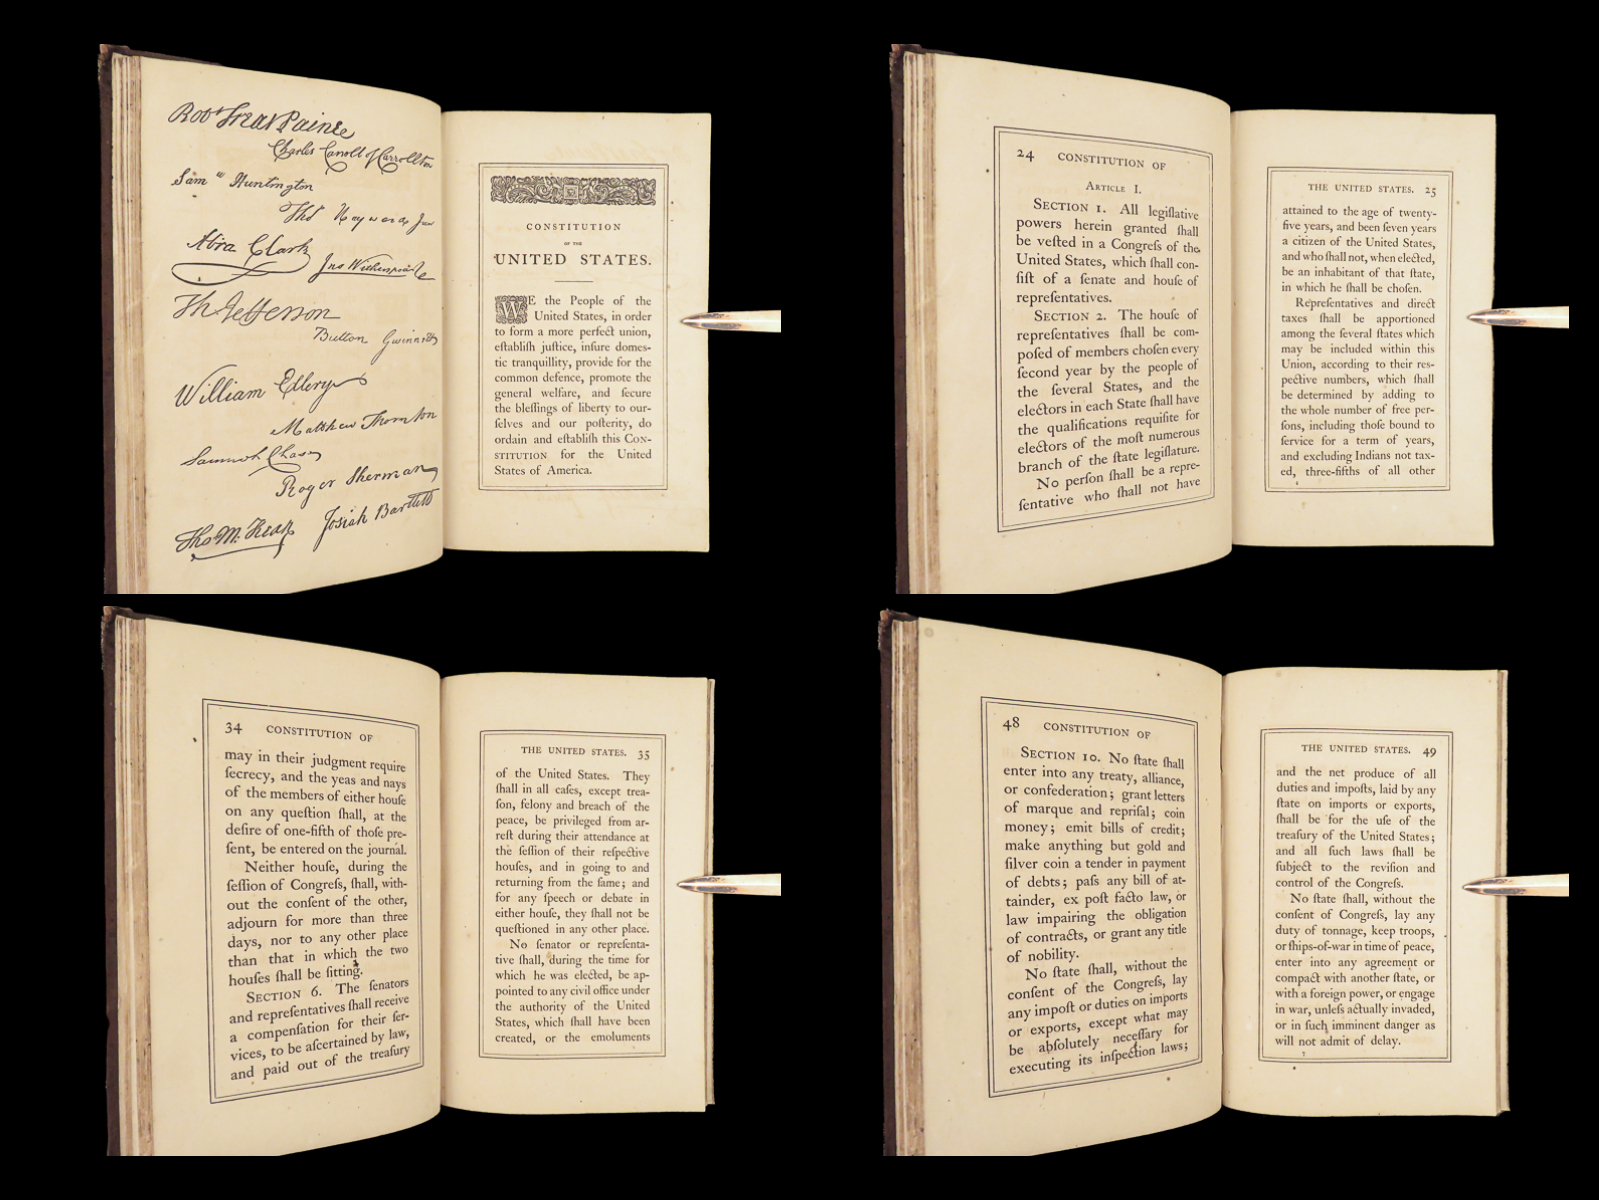 Robt Treat Paine
Charles Carroll of Carrollton
Sam el Huntington
Thos Heyward Jun
Abra Clark
Jno Witherspoon
Th Jefferson
Button Gwinnett
William Ellery
Matthew Thornton
Samuel Chase
Roger Sherman
Thos M. Kean Josiah Bartlett
CONSTITUTION
OF THE
UNITED STATES.
WE the People of the
United States, in order
to form a more perfect union,
eſtabliſh juſtice, inſure domeſ-
tic tranquillity, provide for the
common defence, promote the
general welfare, and ſecure
the bleſſings of liberty to our-
ſelves and our poſterity, do
ordain and eſtabliſh this CON-
STITUTION for the United
States of America.
24 CONSTITUTION OF
ARTICLE I.
SECTION 1. All legiſlative
powers herein granted ſhall
be veſted in a Congreſs of the
United States, which ſhall con-
ſiſt of a ſenate and houſe of
repreſentatives.
SECTION 2. The houſe of
repreſentatives ſhall be com-
poſed of members choſen every
ſecond year by the people of
the ſeveral States, and the
electors in each State ſhall have
the qualifications requiſite for
electors of the moſt numerous
branch of the ſtate legiſlature.
No perſon ſhall be a repre-
ſentative who ſhall not have
THE UNITED STATES. 25
attained to the age of twenty-
five years, and been ſeven years
a citizen of the United States,
and who ſhall not, when elected,
be an inhabitant of that ſtate,
in which he ſhall be choſen.
Repreſentatives and direct
taxes ſhall be apportioned
among the ſeveral ſtates which
may be included within this
Union, according to their res-
pective numbers, which ſhall
be determined by adding to
the whole number of free per-
ſons, including thoſe bound to
ſervice for a term of years,
and excluding Indians not tax-
ed, three-fifths of all other
34 CONSTITUTION OF
may in their judgment require
ſecrecy, and the yeas and nays
of the members of either houſe
on any queſtion ſhall, at the
deſire of one-fifth of thoſe pre-
ſent, be entered on the journal.
Neither houſe, during the
ſeſſion of Congreſs, ſhall, with-
out the conſent of the other,
adjourn for more than three
days, nor to any other place
than that in which the two
houſes ſhall be ſitting.
SECTION 6. The ſenators
and repreſentatives ſhall receive
a compenſation for their ſer-
vices, to be aſcertained by law,
and paid out of the treaſury
THE UNITED STATES. 35
of the United States. They
ſhall in all caſes, except trea-
ſon, felony and breach of the
peace, be privileged from ar-
reſt during their attendance at
the ſeſſion of their reſpective
houſes, and in going to and
returning from the ſame; and
for any ſpeech or debate in
either houſe, they ſhall not be
queſtioned in any other place.
No ſenator or repreſenta-
tive ſhall, during the time for
which he was elected, be ap-
pointed to any civil office under
the authority of the United
States, which ſhall have been
created, or the emoluments
48 CONSTITUTION OF
SECTION 10. No ſtate ſhall
enter into any treaty, alliance,
or confederation; grant letters
of marque and repriſal; coin
money; emit bills of credit;
make anything but gold and
ſilver coin a tender in payment
of debts; paſs any bill of at-
tainder, ex poſt facto law, or
law impairing the obligation
of contracts, or grant any title
of nobility.
No ſtate ſhall, without the
conſent of the Congreſs, lay
any impoſt or duties on imports
or exports, except what may
be abſolutely neceſſary for
executing its inſpection laws;
THE UNITED STATES. 49
and the net produce of all
duties and impoſts, laid by any
ſtate on imports or exports,
ſhall be for the uſe of the
treaſury of the United States;
and all ſuch laws ſhall be
ſubject to the reviſion and
control of the Congreſs.
No ſtate ſhall, without the
conſent of Congreſs, lay any
duty of tonnage, keep troops,
or ſhips-of-war in time of peace,
enter into any agreement or
compact with another ſtate, or
with a foreign power, or engage
in war, unleſs actually invaded,
or in ſuch imminent danger as
will not admit of delay.